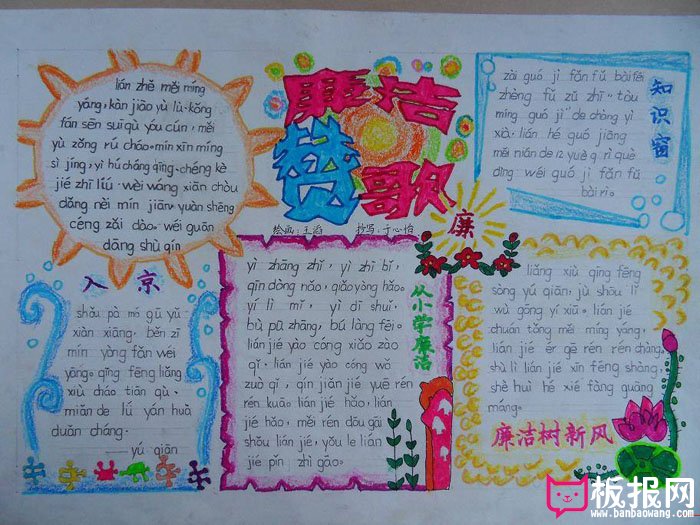 廉洁
赞歌
绘画:王滔 抄写:于心怡
lián zhě měi míng
yáng, kàn jiāo yù lù. kǒng
fán sēn suì qù yóu cún, měi
yù zǒng rú cháo. mín xīn míng
sì jìng, yì hú cháng qīng. chéng kè
jié zhī liú. wèi wàng xiān chòu
dǎng nèi mín jiān. yuàn shēng
céng zǎi dào. wéi guān
dāng shù qín
zài guó jì fǎn fǔ bài fēi
zhèng fǔ zǔ zhī "tòu
míng guó jì" de chàng yì
xià. lián hé guó jiāng
měi nián de 12 yuè 9 rì què
dìng wéi guó jì fǎn fǔ
bài rì.
知识窗
廉
入京
shǒu pà mó gū yǔ
xiàn xiāng. běn zī
mín yòng fǎn wéi
yāng. qīng fēng liǎng
xiù cháo tiān qù.
miǎn dé lǘ yán huà
duǎn cháng.
——yú qiān
yì zhāng zhǐ, yì zhī bǐ,
qín dòng nǎo, qiǎo yòng hǎo.
yí lì mǐ, yì dī shuǐ,
bù pū zhāng, bú làng fèi.
lián jié yào cóng xiǎo zào
qǐ. lián jié yào cóng wǒ
zuò qǐ, qín jiǎn jié yuē rén
rén kuā. lián jié hǎo, lián
jié hǎo, měi rén dōu gāi
shǒu lián jié, yǒu le lián
jié pǐn zhì gāo.
从小学廉洁
liǎng xiù qīng fēng
sòng yú qiān, jù shōu lǐ
wù gōng yí xiū. lián jié
chuán tǒng měi míng yáng,
lián jié ér gē rén rén chàng.
shù lì lián jié xīn fēng shàng,
shè huì hé xié fàng guāng
máng.
廉洁树新风
板报网
www.banbaowang.com